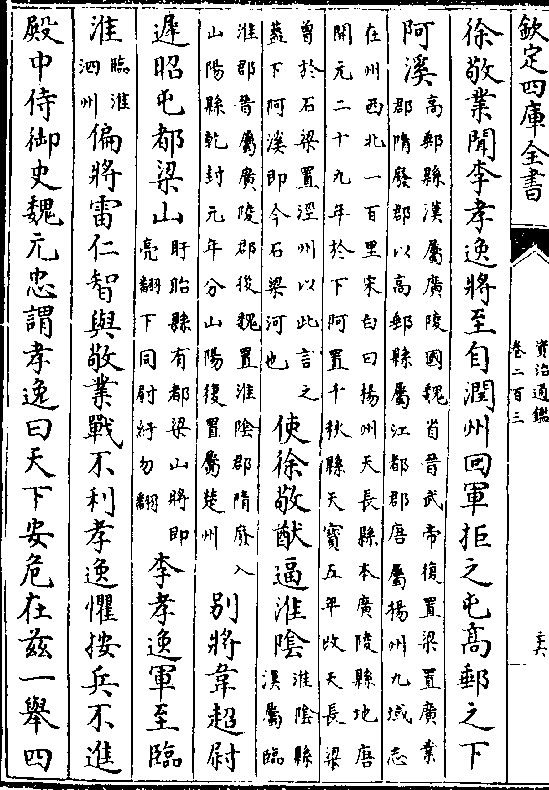 欽定四庫全書
資治通鑑
卷二百三
徐敬業聞李孝逸將至自潤州回軍拒之屯高郵之下
阿溪
高郵縣漢屬廣陵國魏省晉武帝復置梁置廣業
郡隋廢郡以高郵縣屬江都郡唐屬揚州九域志
在州西北一百里宋白曰揚州天長縣本廣陵縣地唐
開元二十九年於下阿置千秋縣天寶五年改天長梁
曾於石梁置涇州以此言之
蓋下阿溪即今石梁河也
使徐敬猷逼淮陰
淮陰縣
漢屬臨
淮郡晉屬廣陵郡後魏置淮陰郡隋廢入
山陽縣乾封元年分山陽復置屬楚州
別將韋超尉
遲昭屯都梁山
盱眙縣有都梁山將即
亮翻下同尉紆勿翻
李孝逸軍至臨
淮
臨淮
泗州
偏將雷仁智與敬業戰不利孝逸懼按兵不進
殿中侍御史魏元忠謂孝逸曰天下安危在茲一舉四